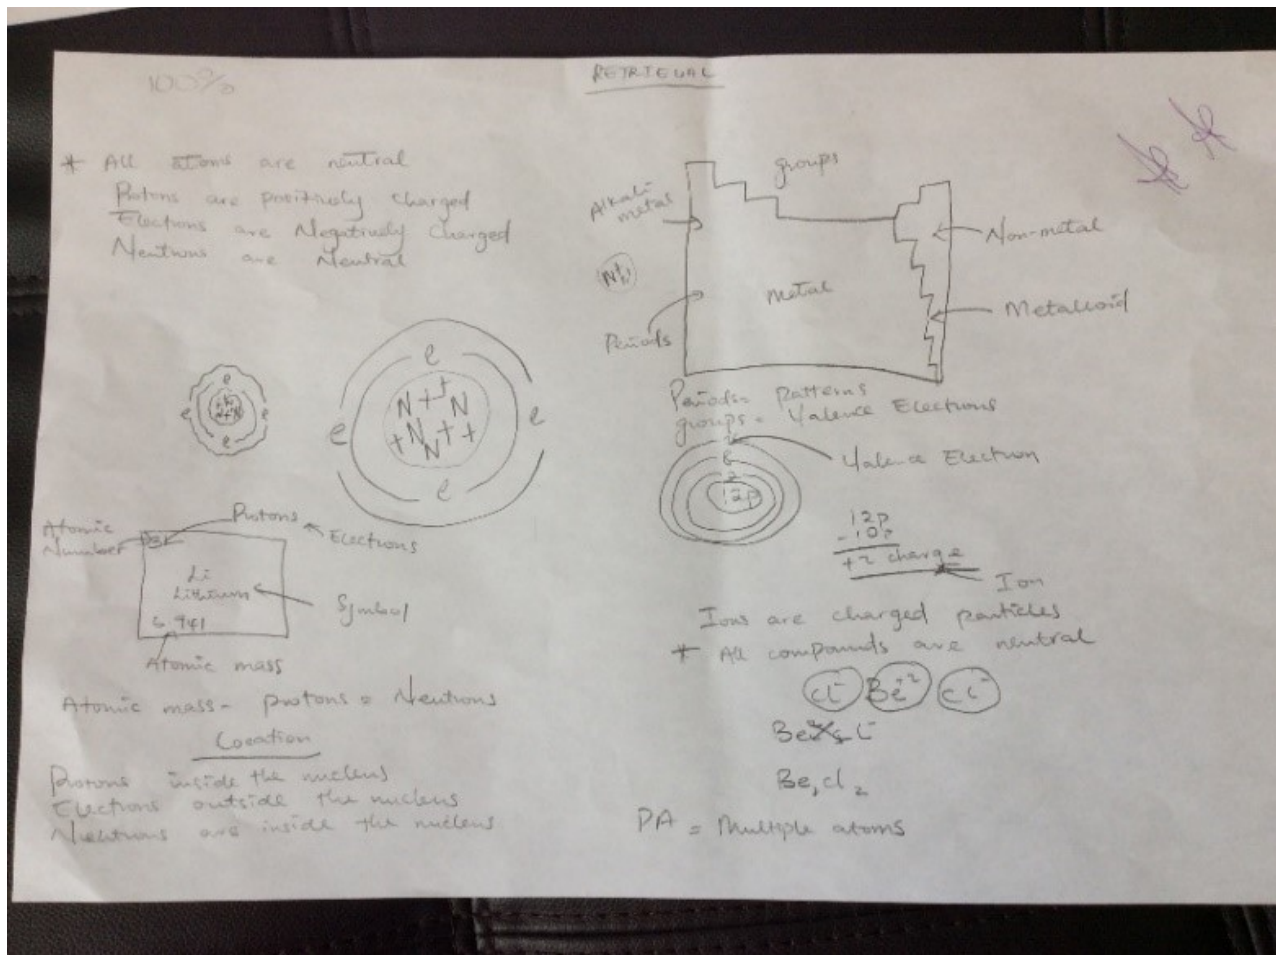 100%
RETRIEVAL
* All atoms are neutral
Protons are positively charged
Electrons are Negatively charged
Neutrons are Neutral
e
e
e
e
e
e
e
e
N + +
N
+ N + +
N
Atomic
Number
Protons
Electrons
3
Li
Lithium
6.941
Symbol
Atomic mass
Atomic mass - protons = Neutrons
Location
Protons inside the nucleus
Electrons outside the nucleus
Neutrons are inside the nucleus
groups
Alkali
metal
Non-metal
Metal
Metalloid
Periods
Periods = patterns
groups = Valence Electrons
2
8
2
12p
Valence Electron
12p
-10e
+2 charge
Ion
Ions are charged particles
* All compounds are neutral
Cl⁻ Be⁺² Cl⁻
Be₁Cl₂
PA = Multiple atoms